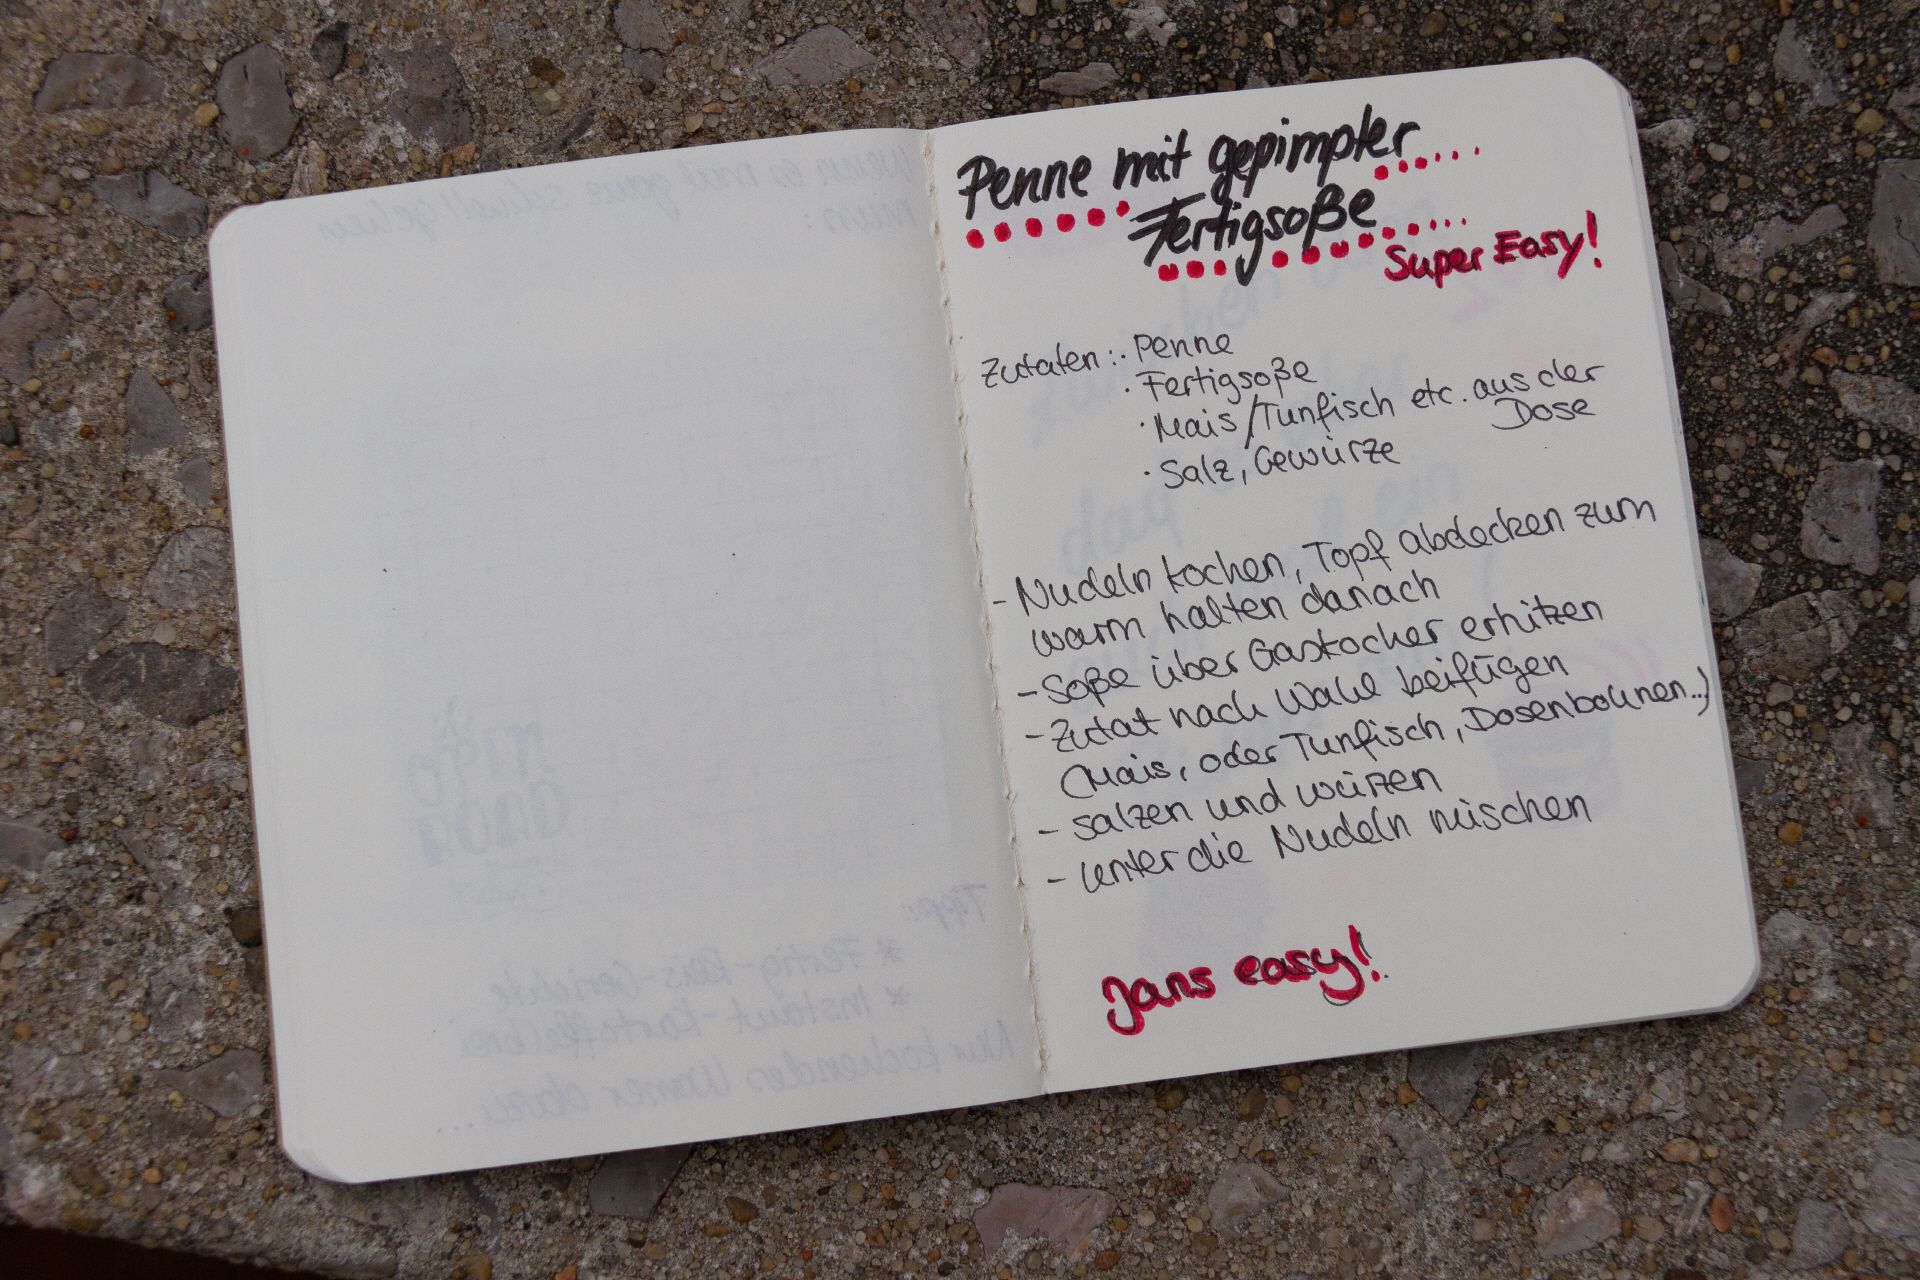 Penne mit gepimpter
Fertigsoße
Super Easy!
Zutaten: · Penne
· Fertigsoße
· Mais/Tunfisch etc. aus der
Dose
· Salz, Gewürze
- Nudeln kochen, Topf abdecken zum
warm halten danach
- Soße über Gaskocher erhitzen
- Zutat nach Wahl beifügen
(Mais, oder Tunfisch, Dosenbohnen..)
- salzen und würzen
- unter die Nudeln mischen
Jans easy!